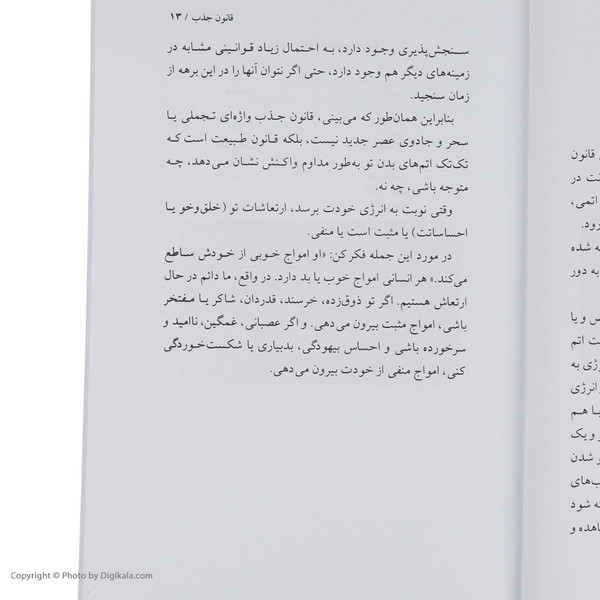 قانون جذب / ۱۳
سـنجش‌پذیری وجود دارد، بـه احتمال زیاد قوانینی مشابه در
زمینه‌های دیگر هم وجود دارد، حتی اگر نتوان آنها را در این برهه از
زمان سنجید.
بنابراین همان‌طور که می‌بینی، قانون جـذب واژه‌ای تجملی یـا
سحر و جادوی عصر جدید نیست، بلکه قـانون طبیعت است کـه
تک‌تک اتم‌های بدن تو به‌طور مداوم واکنش نشـان مـی‌دهد، چـه
متوجه باشی، چه نه.
وقتی نوبت به انرژی خودت برسد، ارتعاشات تو (خلق‌وخو یـا
احساساتت) یا مثبت است یا منفی.
در مورد این جمله فکر کن: «او امواج خوبی از خـودش سـاطع
می‌کند.» هر انسانی امواج خوب یا بد دارد. در واقع، ما دائم در حال
ارتعاش هستیم. اگر تو ذوق‌زده، خرسند، قدردان، شاکر یـا مـفتخر
باشی، امواج مثبت بیرون می‌دهی. و اگر عصبانی، غمگین، ناامید و
سرخورده باشی و احساس بیهودگی، بدبیاری یا شکست‌خـوردگی
کنی، امواج منفی از خودت بیرون می‌دهی.
قانون
ت در
اتمی،
رود.
ه شده
به دور
س و یا
ت اتم
ژی به
انرژی
با هم
و یک
و شدن
ب‌های
ه شود
اهده و
Copyright © Photo by Digikala.com